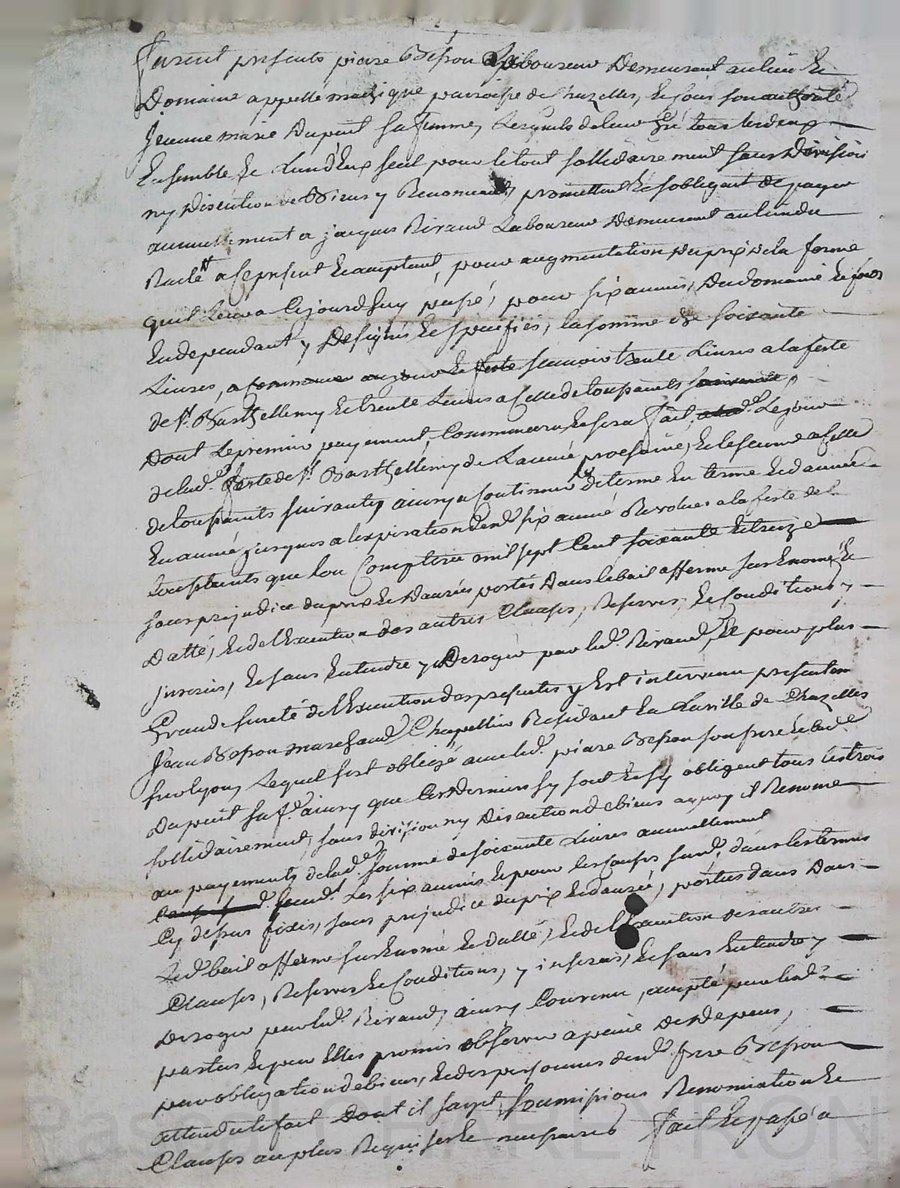 furent presents piare Besson Laboureur Demeurant au lieu et
Domaine appellé parroisse de Chazelles, et sous son authorité
Jeanne marie Dupuit sa femme, Lesquels de leur gré tous les deux
Ensemble et L'un d'Eux seul pour le tout sollidairement sans Division
ny Discution de Biens y Renoncent, promettent et sobligent de payer
annuellement a jacques Riraud Laboureur Demeurant au lieu du
a ce present Ecceptant, pour augmentation du prix de la ferme
quil Leur a Cejourdhuy passé, pour six années, Du domaine et fonds
En dependant y Designés et speciffiés, la somme de soixante
Livres, a Commancer scavoir trente Livres a la feste
de st. Barthellemy et trente Livres a Celle de toussaints
Dont Le premier payement Commancera et sera fait, Le jour
de lad. feste de st. Barthellemy de L'année prochaine, et le second a Celle
de toussaints suivante, ainsy a Continuer de terme En terme et d'année
En année jusques a l'expiration desd. six année Revolues a la feste de
toussaints que l'on Comptera mil sept Cent soixante et treize
sans prejudice du prix et Danrés portés Dans le bail afferme sus Enoncé et
Datté, et de l'Execution des autres Clauses, Reserves, et Conditions y
Inserées, et sans Entendre y Deroger par led. Riraud, Et pour plus
Grande sureté de l'Execution des presentes y Est intervenu present en
Jean Besson marchand Chapellier Residant En La ville de Chazelles
sur Lyon, Lequel s'est obligé avec led. piare Besson son frere et lad.
Dupuit sa fe. ainsy que Ces Derniers sy sont et sy obligent tous les trois
sollidairement, sans division ny Discution de biens a quoy il Renonce
au payement de lad. somme de soixante Livres annuellement
Les six années et pour les Causes susd. dans les termes
Cy dessus fixés, sans prejudice du prix et danrés, portés dans Dans
Led. bail afferme sus Enoncé et datté, et de l'Execution des autres
Clauses, Reserves et Conditions, y inserées, et sans Entendre y
Deroger par led. Riraud, ainsy Convenu, accepté par lesd.
parties et par Elles promis observer a peine de Depens,
par obligation de biens, et des personnes desd. frere Besson
attendu le fait Dont il sagit, soumissions Renonciation et
Clauses au plus Requises et necessaires fait et passé a